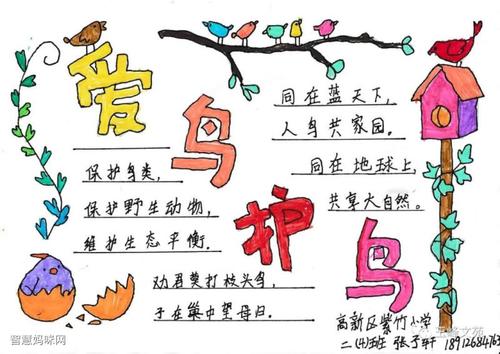 爱鸟护鸟
保护鸟类,
保护野生动物,
维护生态平衡.
劝君莫打枝头鸟,
子在巢中望母归.
同在蓝天下,
人鸟共家园.
同在地球上,
共享大自然.
高新区紫竹小学
二(4)班
智慧妈咪网